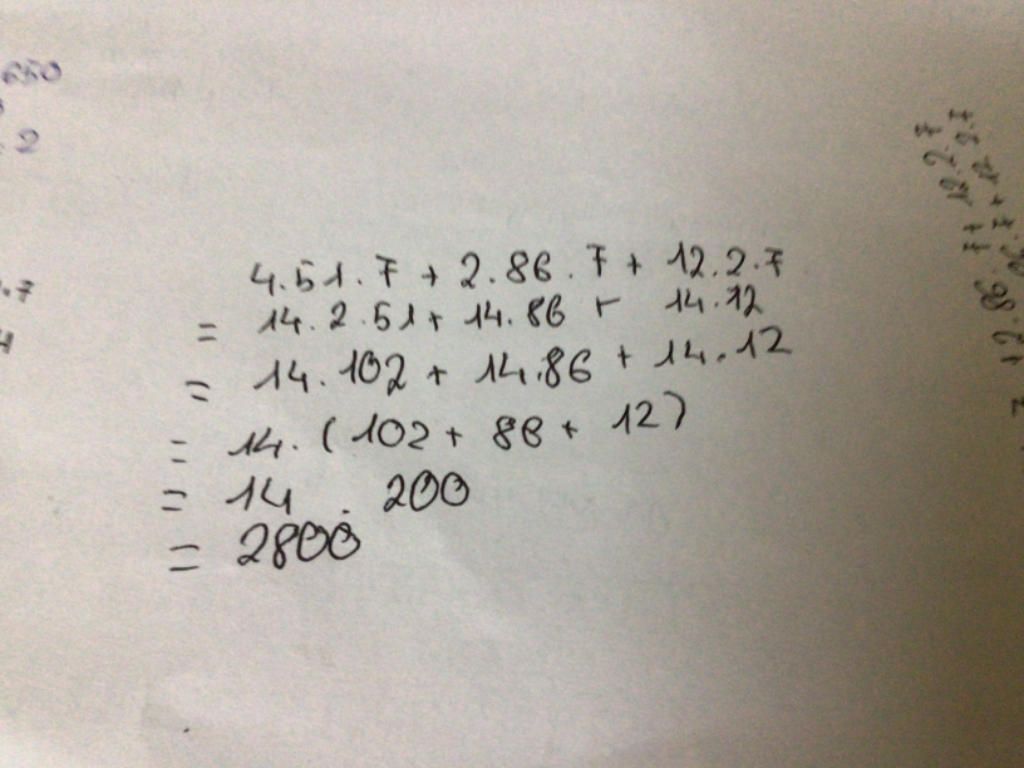 650
. 2
.7
4
4.51.7 + 2.86.7 + 12.2.7
= 14.2.51 + 14.86 + 14.12
= 14.102 + 14.86 + 14.12
= 14.(102 + 86 + 12)
= 14 . 200
= 2800